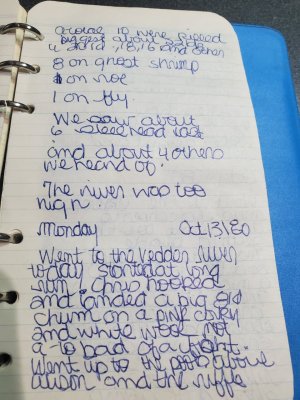 10 were
biggest about
18, 16 and others
8 on ghost shrimp
1 on roe
1 on fly
We saw about
6 steelhead lost
and about 4 others
we heard of.
The river was too
high.
Monday Oct 13/80
Went to the vedder river
today started at
run. Chris hooped
and landed a big old
chum on a pink corky
and white wool not
a to bad of a fight.
Went up to the pool above
and the riffe